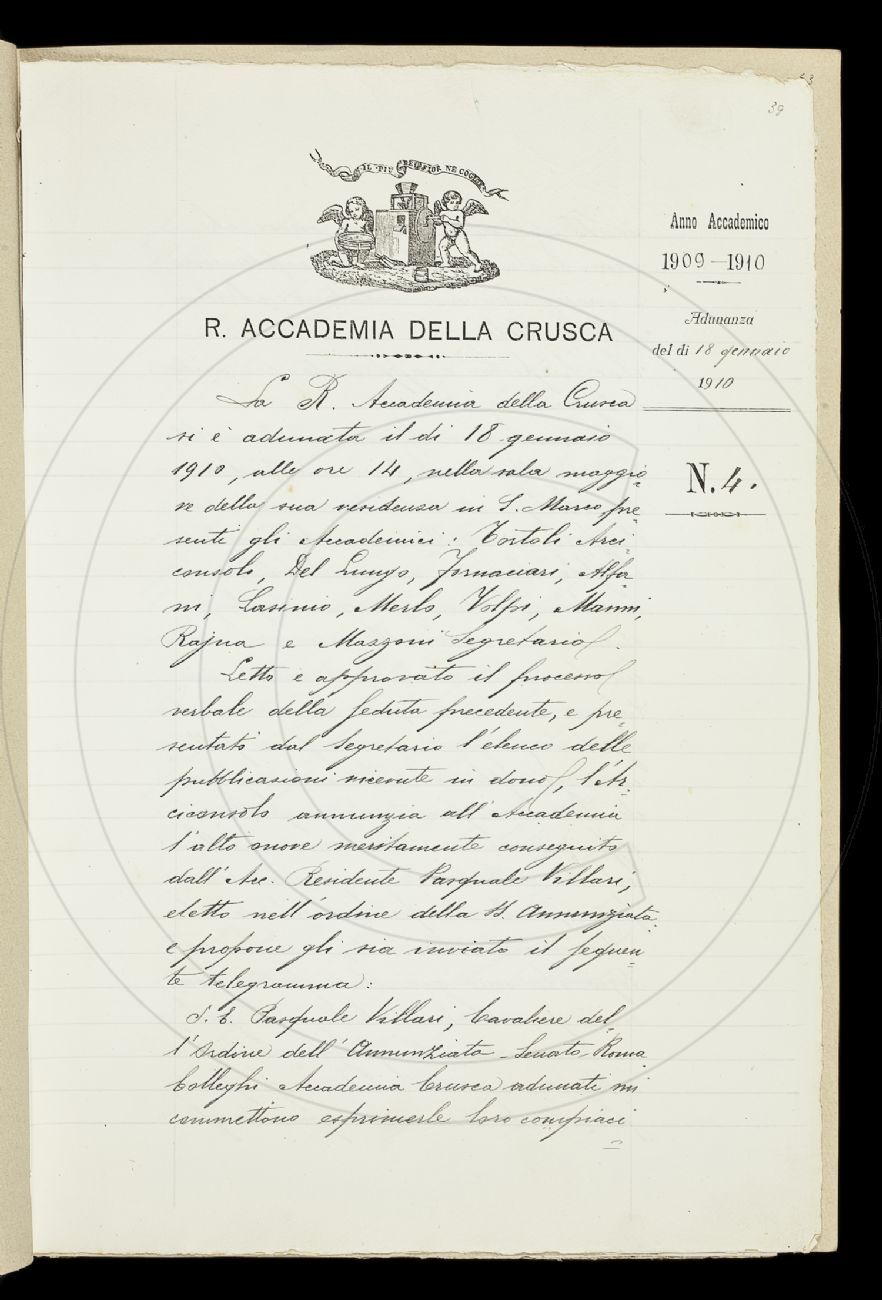 39
IL PIÙ BEL FIOR NE COGLIE
Anno Accademico
1909-1910
R. ACCADEMIA DELLA CRUSCA
Adunanza
del dì 18 gennaio
1910
N. 4.
La R. Accademia della Crusca
si è adunata il dì 18 gennaio
1910, alle ore 14, nella sala maggio-
re della sua residenza in S. Marco, pre-
senti gli Accademici: Tortoli Arci-
consolo, Del Lungo, Fornaciari, Alfa-
ni, Casinio, Merlo, Volpi, Manni,
Rajna e Mazzoni Segretario.
Letto e approvato il processo
verbale della seduta precedente, e pre-
sentato dal Segretario l'elenco delle
pubblicazioni ricevute in dono, l'Ar-
ciconsolo annunzia all'Accademia
l'alto onore meritamente conseguito
dall'Acc. Residente Pasquale Villari,
eletto nell'ordine della SS. Annunziata
e propone gli sia inviato il seguen-
te telegramma:
S. E. Pasquale Villari, Cavaliere del-
l'Ordine dell'Annunziata - Senato Roma
Colleghi Accademia Crusca adunati mi
commettono esprimerle loro compiaci=